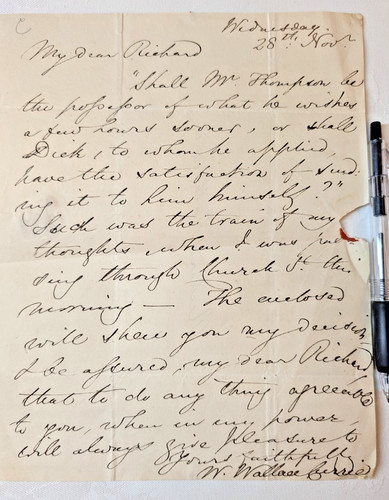 Wednesday.
28th. Novr.
My dear Richard
"Shall Mr Thompson be
the possessor of what he wishes
a few hours sooner, or shall
Dick, to whom he applied,
have the satisfaction of send-
ing it to him himself?"
Such was the train of my
thoughts when I was pas-
sing through Church St. this
morning — The enclosed
will shew you my decision
& be assured, my dear Richard,
that to do any thing agreeable
to you, when in my power,
will always give pleasure to
Yours faithfully
W. Wallace Currie